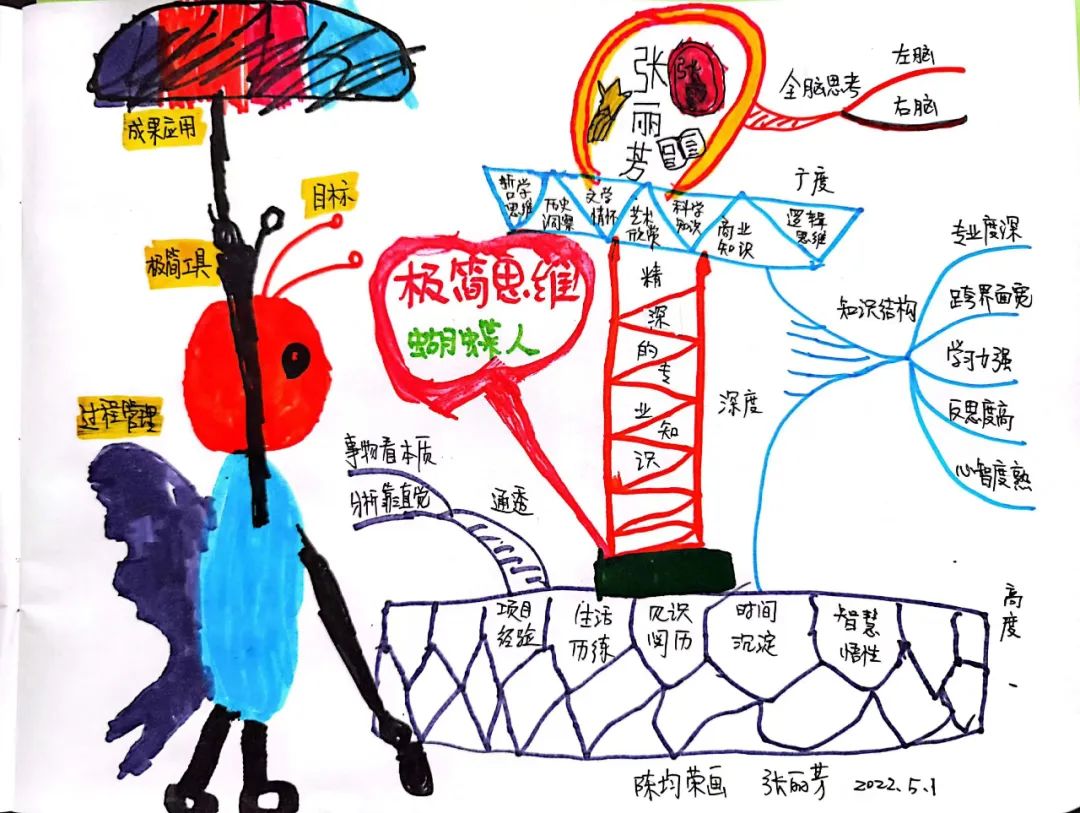 成果应用
目标
极简工具
过程管理
极简思维
蝴蝶人
张
丽
芳
张
全脑思考
左脑
右脑
广度
哲学
思维
历史
洞察
文学
情怀
艺术
欣赏
科学
知识
商业
知识
逻辑
思维
精
深
的
专
业
知
识
深度
知识结构
专业度深
跨界面宽
学习力强
反思度高
心智度熟
事物看本质
分析靠直觉
通透
项目
经验
生活
历练
见识
阅历
时间
沉淀
智慧
悟性
高
度
陈均荣画 张丽芳 2022.5.1